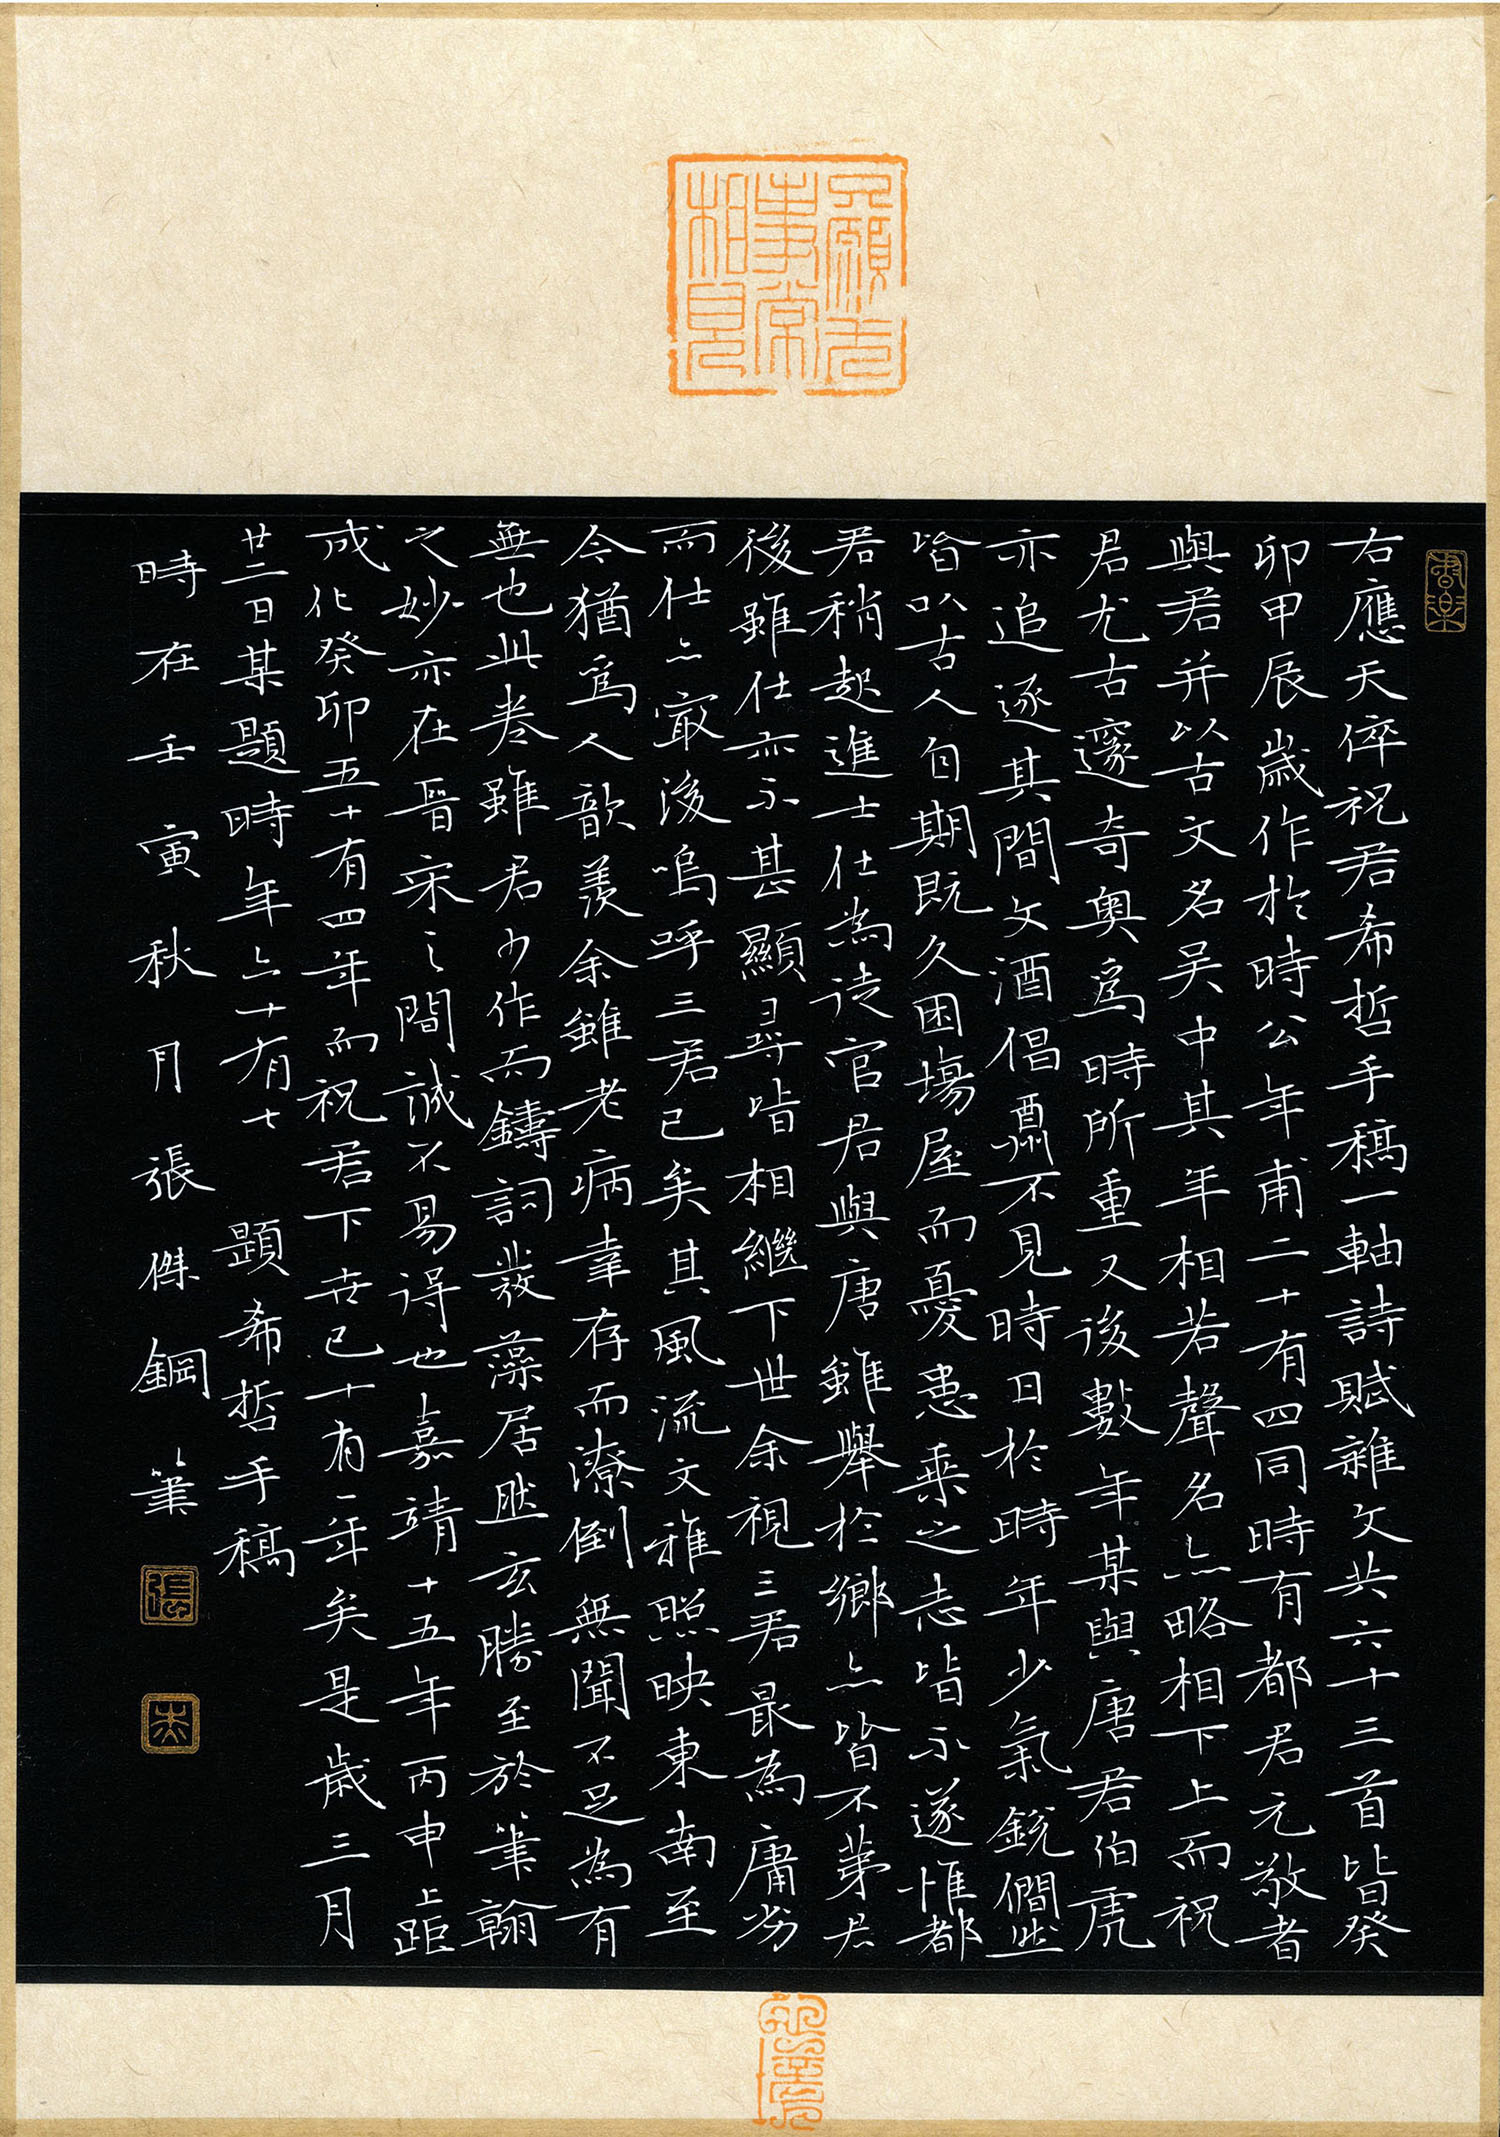 事常
相見
右應天倅祝君希哲手稿一軸詩賦雜文共六十三首皆癸
卯甲辰歲作於時公年甫二十有四同時有都君元敬者
與君并以古文名吴中其年相若聲名亦略相下上而祝
君尤古邃奇奧爲時所重又後數年某與唐君伯虎
亦追逐其間文酒倡酬不見時日於時年少氣銳僩然
皆以古人自期既久困塲屋而憂患乘之志皆不遂惟都
君稍起進士仕為徒官君與唐雖舉於鄉亦皆不第君
後雖仕亦不甚顯尋皆相繼下世余視三君最為庸劣
而仕亦最後嗚呼三君已矣其風流文雅照映東南至
今猶爲人歆羨余雖老病幸存而潦倒無聞不足為有
無也此卷雖君少作而鑄詞發藻居然玄勝至於筆翰
之妙亦在晉宋之間誠不易得也嘉靖十五年丙申上距
成化癸卯五十有四年而祝君下世已十有一年矣是歲三月
廿二日某題時年六十有七 題希哲手稿
時在壬寅秋月張傑鋼筆
張
杰